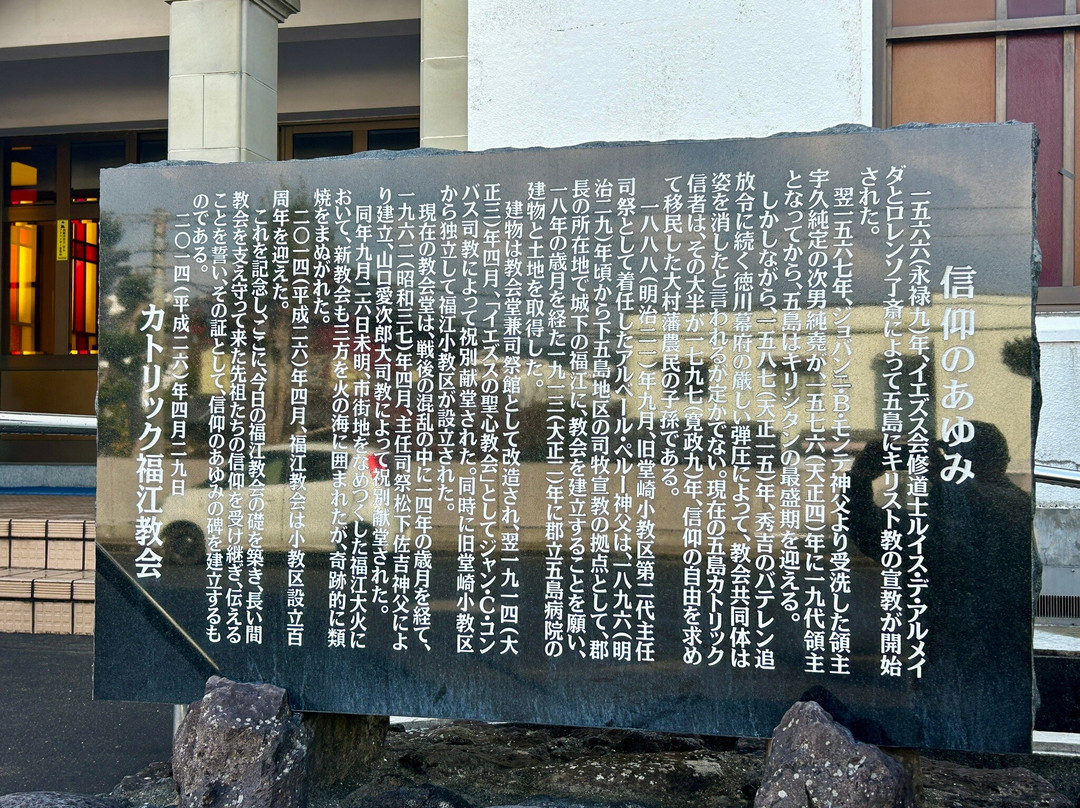 信仰のあゆみ
一五六六（永禄九）年、イエズス会修道士ルイス・デ・アルメイ
ダとロレンソ了斎によって五島にキリスト教の宣教が開始
された。
翌一五六七年、ジョバンニ・B・モンテ神父より受洗した領主
宇久純定の次男純堯が、一五七六（天正四）年に一九代領主
となってから、五島はキリシタンの最盛期を迎える。
しかしながら、一五八七（天正一五）年、秀吉のバテレン追
放令に続く徳川幕府の厳しい弾圧によって、教会共同体は
姿を消したと言われるが定かでない。現在の五島カトリック
信者は、その大半が一七九七（寛政九）年、信仰の自由を求め
て移民した大村藩農民の子孫である。
一八八八（明治二一）年九月、旧堂崎小教区第二代主任
司祭として着任したアルベール・ペルー神父は、一八九六（明
治二九）年頃から下五島地区の司牧宣教の拠点として、郡
長の所在地で城下の福江に、教会を建立することを願い、
一八年の歳月を経た一九一三（大正二）年に郡立五島病院の
建物と土地を取得した。
建物は教会堂兼司祭館として改造され、翌一九一四（大
正三）年四月、「イエズスの聖心教会」としてジャン・C・コン
バス司教によって祝別献堂された。同時に旧堂崎小教区
から独立して福江小教区が設立された。
現在の教会堂は、戦後の混乱の中に一四年の歳月を経て、
一九六二（昭和三七）年四月、主任司祭松下佐吉神父によ
り建立、山口愛次郎大司教によって祝別献堂された。
同年九月二六日未明、市街地をなめつくした福江大火に
おいて、新教会も三方を火の海に囲まれたが、奇跡的に類
焼をまぬがれた。
二〇一四（平成二六）年四月、福江教会は小教区設立百
周年を迎えた。
これを記念し、ここに、今日の福江教会の礎を築き、長い間
教会を支え守って来た先祖たちの信仰を受け継ぎ、伝える
ことを誓い、その証として、「信仰のあゆみ」の碑を建立するも
のである。
二〇一四（平成二六）年四月二九日
カトリック福江教会